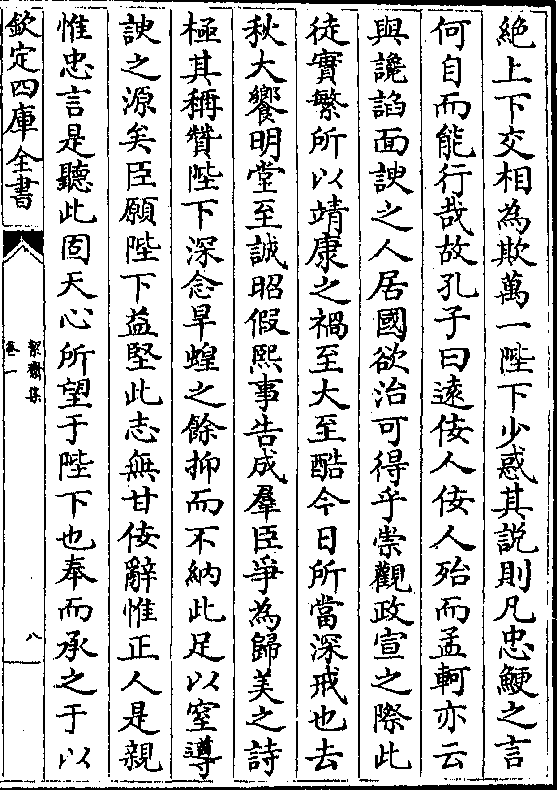 絶上下交相為欺萬一陛下少惑其説則凡忠鯁之言
何自而能行哉故孔子曰逺佞人佞人殆而孟軻亦云
與讒諂面諛之人居國欲治可得乎崇觀政宣之際此
徒實繁所以靖康之禍至大至酷今日所當深戒也去
秋大饗明堂至誠昭假熙事告成羣臣爭為歸美之詩
極其稱賛陛下深念旱蝗之餘抑而不納此足以窒導
諛之源矣臣願陛下益堅此志無甘佞辭惟正人是親
惟忠言是聽此固天心所望于陛下也奉而承之于以
欽定四庫全書
絜齋集
卷一
八